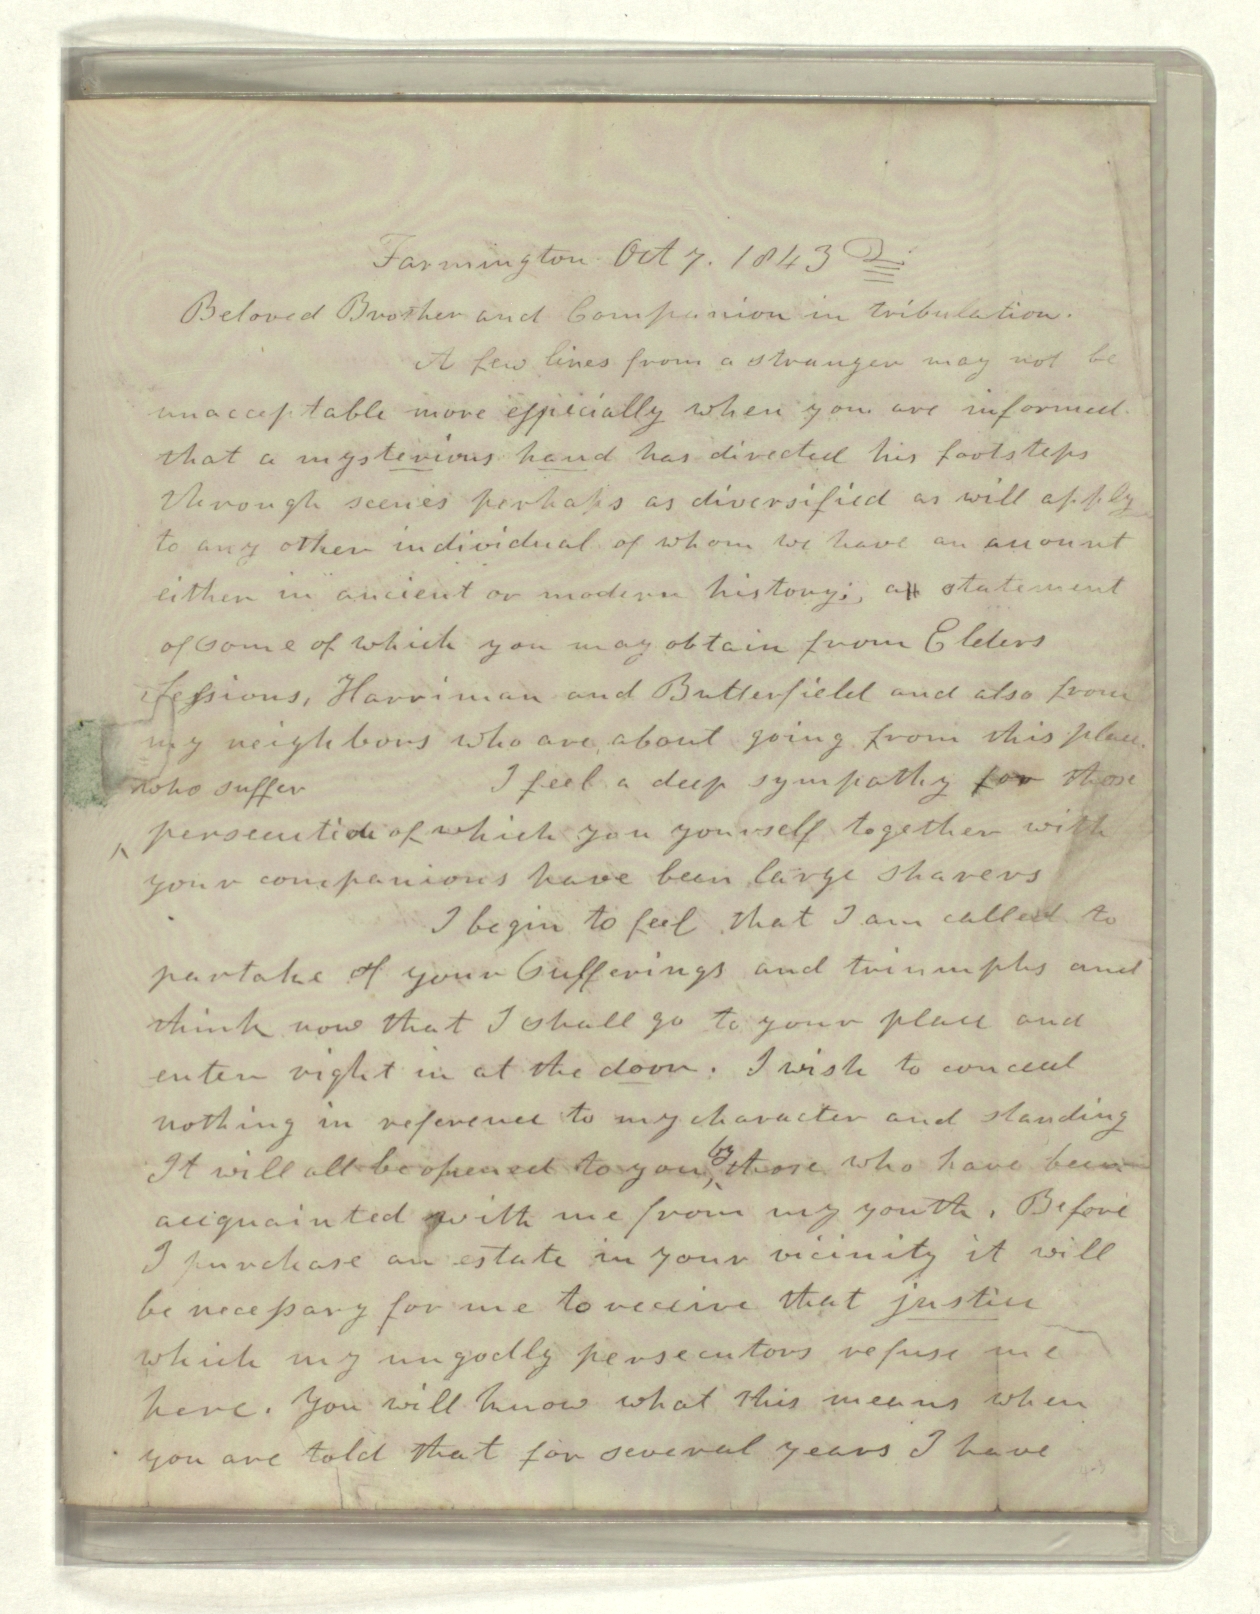 Farmington Oct 7. 1843
Beloved Brother and Companion in tribulation.
A few lines from a stranger may not be
unacceptable more espicially when you are informed
that a mysterious hand has directed his footsteps
through scenes perhaps as diversified as will apply
to any other individual of whom we have an account
either in ancient or modern history; a statement
of some of which you may obtain from Elders
Sessions, Harriman and Butterfield and also from
my neighbors who are about going from this place.
I feel a deep sympathy for those
who suffer
persecution of which you yourself together with
your companions have been large sharers
I begin to feel that I am called to
partake of your Sufferings and triumphs and
think now that I shall go to your place and
enter right in at the door. I wish to conceal
nothing in reference to my character and standing
It will all be opened to you by those who have been
acquainted with me from my youth. Before
I purchase an estate in your vicinity it will
be necessary for me to receive that justice
which my ungodly persecutors refuse me
here. You will know what this means when
you are told that for several years I have